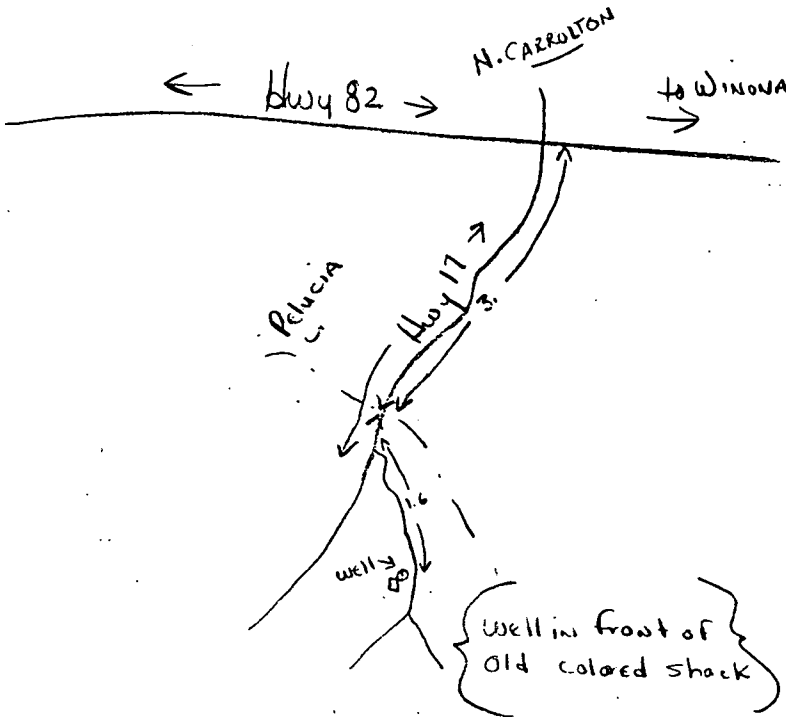 N. CARROLTON
Hwy 82
to WINONA
Pelucia
Hwy 17
3.
1.6
well
Well in front of
Old colored shack